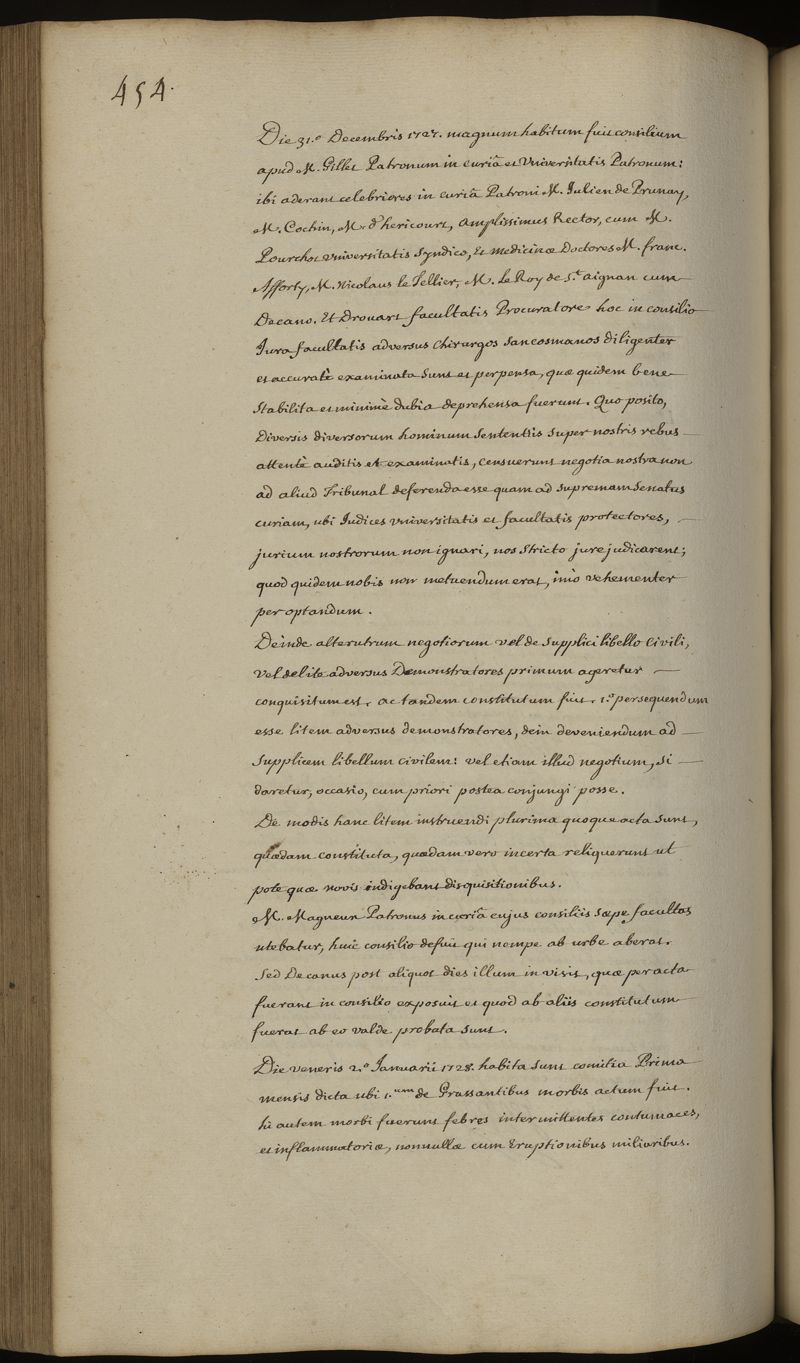 454.
Die 31.° Decembris 1727. magnum habitum fuit consilium
apud M. Gillet Patronum in curiâ et Universitatis Patronum:
ibi aderant celebriores in curiâ Patroni M. Julien de Prunay,
M. Cochin, M. d'hericourt, Amplissimus Rector, cum M.
Pourchot universitatis Syndico, Et medicinæ Doctores M. franc.
Afforty, M. Nicolaus le Tellier, M. Le Roy de S.t aignan cum
Decano. Et Drouart facultatis Procuratore hoc in consilio
Jura facultatis adversus chirurgos sancosmanos diligenter
et accuratè examinata sunt et perpensa, quæ quidem bene
Stabilita et minimè dubia deprehensa fuerunt. Quo posito,
Diversis diversorum hominum sententiis super nostris rebus
attentè auditis et examinatis, censuerunt negotia nostra non
ad aliud Tribunal deferenda esse quam ad supremam Senatus
curiam, ubi Judices universitatis et facultatis protectores,
jurium nostrorum non ignari, nos stricto jure judicarent;
quod quidem nobis non metuendum erat, imò vehementer
peroptandum.
Deinde alterutrum negotiorum vel de supplici libello civili,
vel de lite adversus Demonstratores primum ageretur
conquisitum est, ac tandem constitutum fuit. 1.° persequendum
esse litem adversus demonstratores, dein deveniendum ad
supplicem libellum civilem: vel etiam illud negotium, si
daretur, occasio, cum priori postea conjungi posse.
De modis hanc litem instruendi plurima quoque acta sunt,
quædam constituta, quædam vero incerta reliquerunt ut
pote quæ novis indigebant disquisitionibus.
M. Magneux Patronus in curiâ cujus consiliis sæpe facultas
utebatur, huic consilio defuit qui nempe ab urbe aberat.
Sed Decanus post aliquot dies illum invisit, quæ peracta
fuerant in consilio exposuit et quod ab aliis constitutum
fuerat ab eo valde probata sunt.
Die veneris 2.° Januarii 1728. habita sunt comitia Prima
mensis dicta ubi 1.um de Grassantibus morbis actum fuit.
hi autem morbi fuerunt febres intermittentes contumaces,
et inflammatoriæ, nonnullæ cum Eruptionibus miliaribus.